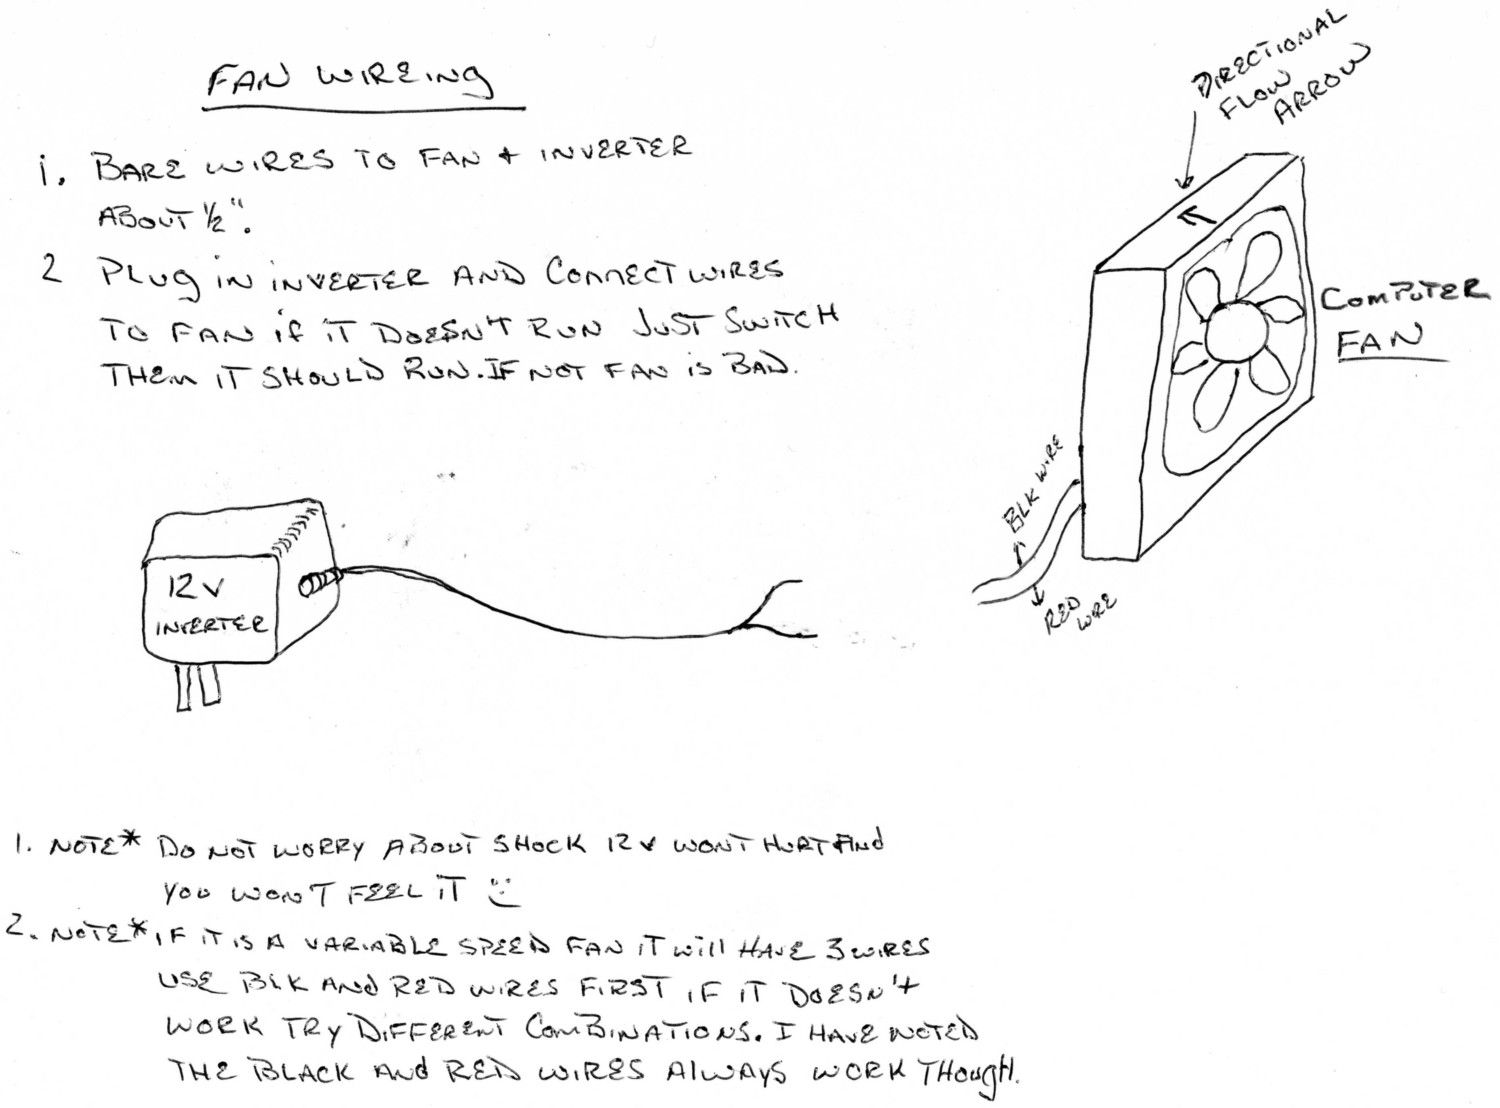 FAN WIREING
1. BARE WIRES TO FAN + INVERTER
ABOUT 1/2".
2 PLUG IN INVERTER AND CONNECT WIRES
TO FAN IF IT DOESN'T RUN JUST SWITCH
THEM IT SHOULD RUN. IF NOT FAN IS BAD.
DIRECTIONAL
FLOW
ARROW
COMPUTER
FAN
BLK WIRE
RED
WIRE
12V
INVERTER
1. NOTE* DO NOT WORRY ABOUT SHOCK 12V WONT HURT AND
YOU WON'T FEEL IT
2. NOTE* IF IT IS A VARIABLE SPEED FAN IT WILL HAVE 3 WIRES
USE BLK AND RED WIRES FIRST IF IT DOESN'T
WORK TRY DIFFERENT COMBINATIONS. I HAVE NOTED
THE BLACK AND RED WIRES ALWAYS WORK THOUGH.